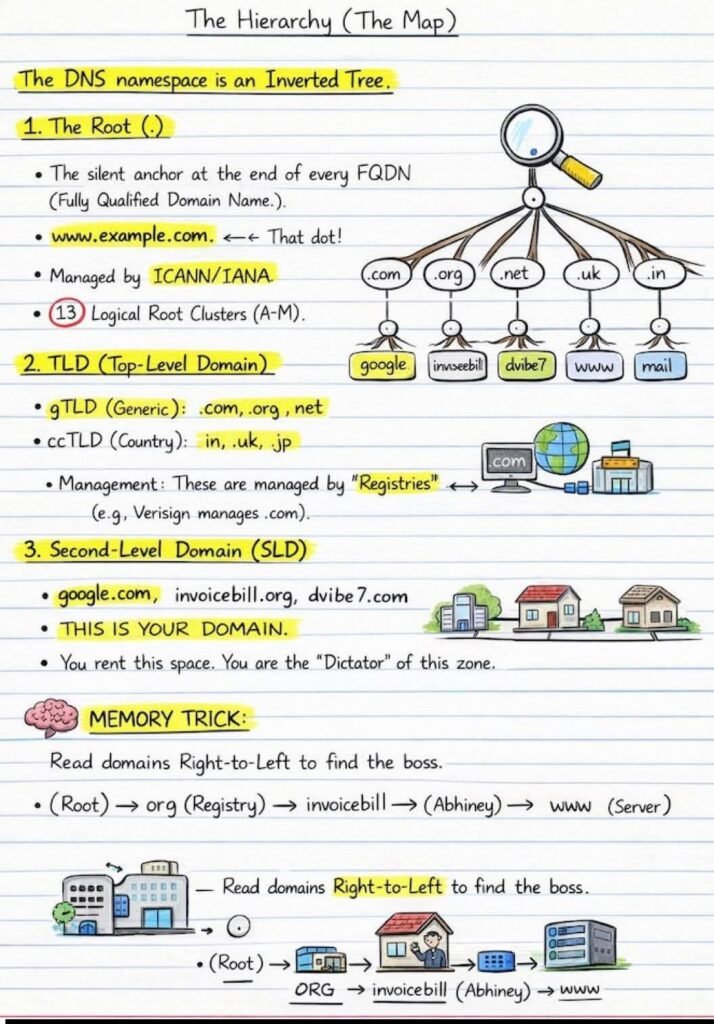 The Hierarchy (The Map)
The DNS namespace is an Inverted Tree.
1. The Root (.)
• The silent anchor at the end of every FQDN
(Fully Qualified Domain Name.).
• www.example.com. ←← That dot!
• Managed by ICANN/IANA
• 13 Logical Root Clusters (A-M).
.com .org .net .uk .in
google invseebill dvibe7 www mail
2. TLD (Top-Level Domain)
• gTLD (Generic): .com, .org , net
• ccTLD (Country): in, .uk, .jp
• Management: These are managed by "Registries" ↔
(e.g, Verisign manages .com).
.com
3. Second-Level Domain (SLD)
• google.com, invoicebill.org, dvibe7.com
• THIS IS YOUR DOMAIN.
• You rent this space. You are the "Dictator" of this zone.
MEMORY TRICK:
Read domains Right-to-Left to find the boss.
• (Root) → org (Registry) → invoicebill → (Abhiney) → www (Server)
— Read domains Right-to-Left to find the boss.
• (Root) →
ORG → invoicebill (Abhiney) → www